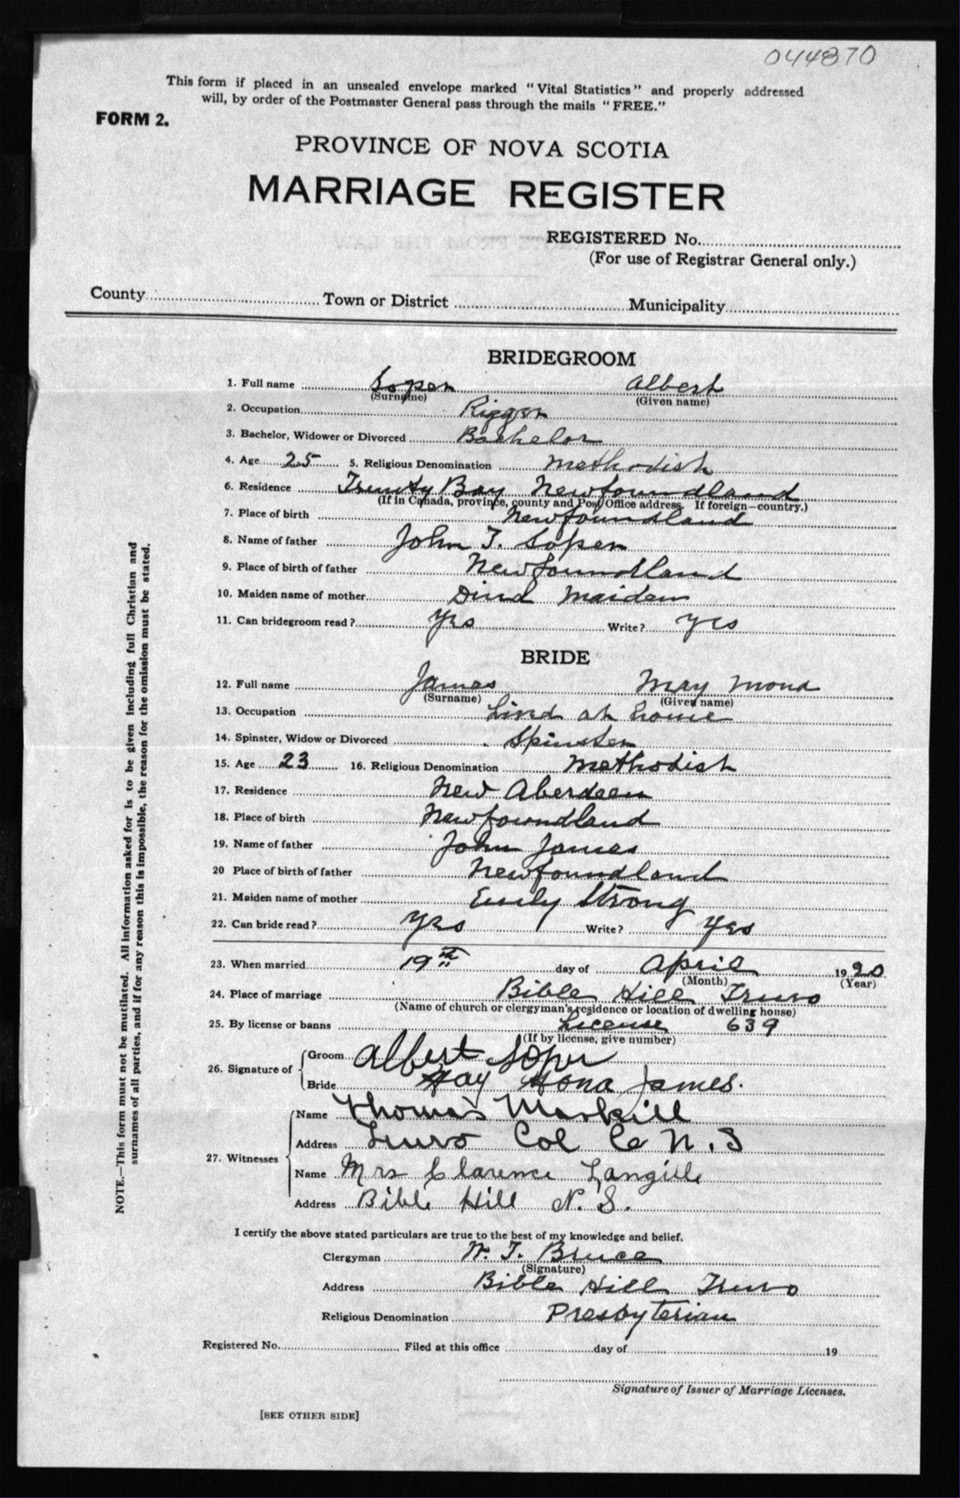 044870
This form if placed in an unsealed envelope marked "Vital Statistics" and properly addressed
will, by order of the Postmaster General pass through the mails "FREE."
FORM 2.
PROVINCE OF NOVA SCOTIA
MARRIAGE REGISTER
REGISTERED No.
(For use of Registrar General only.)
County Town or District Municipality
BRIDEGROOM
1. Full name Soper Albert
(Surname) (Given name)
2. Occupation Rigger
3. Bachelor, Widower or Divorced Bachelor
4. Age 25 5. Religious Denomination Methodist
6. Residence Trinity Bay Newfoundland
(If in Canada, province, county and Post Office address. If foreign—country.)
7. Place of birth Newfoundland
8. Name of father John T. Soper
9. Place of birth of father Newfoundland
10. Maiden name of mother Maiden
11. Can bridegroom read? Yes Write? Yes
BRIDE
12. Full name James May Mona
(Surname) (Given name)
13. Occupation at home
14. Spinster, Widow or Divorced Spinster
15. Age 23 16. Religious Denomination Methodist
17. Residence New Aberdeen
18. Place of birth Newfoundland
19. Name of father John James
20 Place of birth of father Newfoundland
21. Maiden name of mother Emily Strong
22. Can bride read? Yes Write? Yes
23. When married 19th day of April 1920
(Month) (Year)
24. Place of marriage Bible Hill Truro
(Name of church or clergyman's residence or location of dwelling house)
25. By license or banns License 639
(If by license, give number)
26. Signature of Groom Albert Soper
Bride May Mona James.
27. Witnesses Name Thomas
Address Truro Col Co N.S
Name Mrs Clarence Langille
Address Bible Hill N.S.
I certify the above stated particulars are true to the best of my knowledge and belief.
Clergyman W. T. Bruce
(Signature)
Address Bible Hill Truro
Religious Denomination Presbyterian
Registered No. Filed at this office day of 19
Signature of Issuer of Marriage Licenses.
[SEE OTHER SIDE]
NOTE.—This form must not be mutilated. All information asked for is to be given including full Christian and
surnames of all parties, and if for any reason this is impossible, the reason for the omission must be stated.